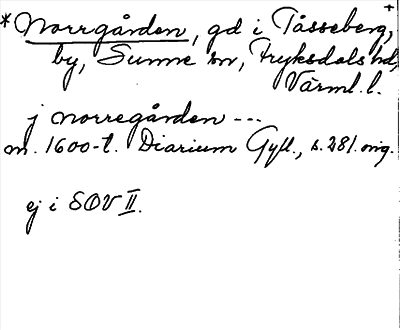 *Norrgården, gd i Tåsseberg, +
by, Sunne sn, Fryksdals hd,
Värml. l.
j norregården ---
m. 1600-t. Diarium Gyll., s. 281. orig.
ej i SOV II.